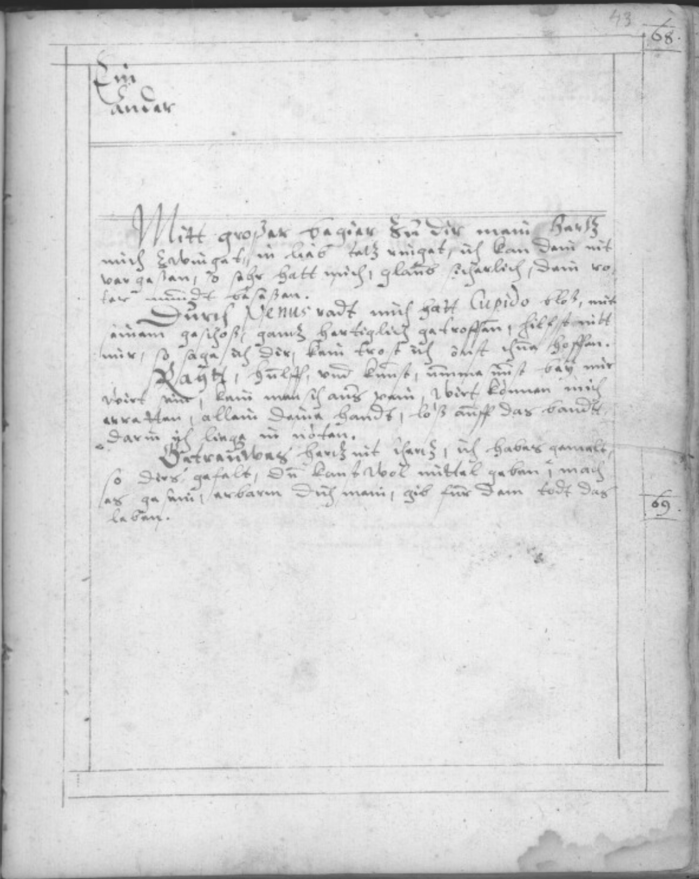 43
68.
Ein
ander
Mitt großer begier zu dir mein hertz
mich zwinget, in lieb stetz ringet, ich kan dein nit
vergeßen, so sehr hatt mich, glaub sicherlich, dein ro,
ter mundt beseßen.
Durch Venus radt mich hatt Cupido bloß, mit
seinem geschoß, gantz hertiglich getroffen, hilfst nitt
mir, so sage ich dir, kein trost ich sonst hoffen.
Raht, hülff, und kunst, umme sunst bey mir
wirt sein, kein mensch auß pein, wirt können mich
erretten, allein deine handt, löß auff das bandt
darin ich liege in nöten.
Getreuwes hertz nit schertz, ich habes gemelt,
so dirs gefalt, du kanst wol mittel geben, mach
es gemein, erbarm dich mein, gib für dem todt das
leben.
69.